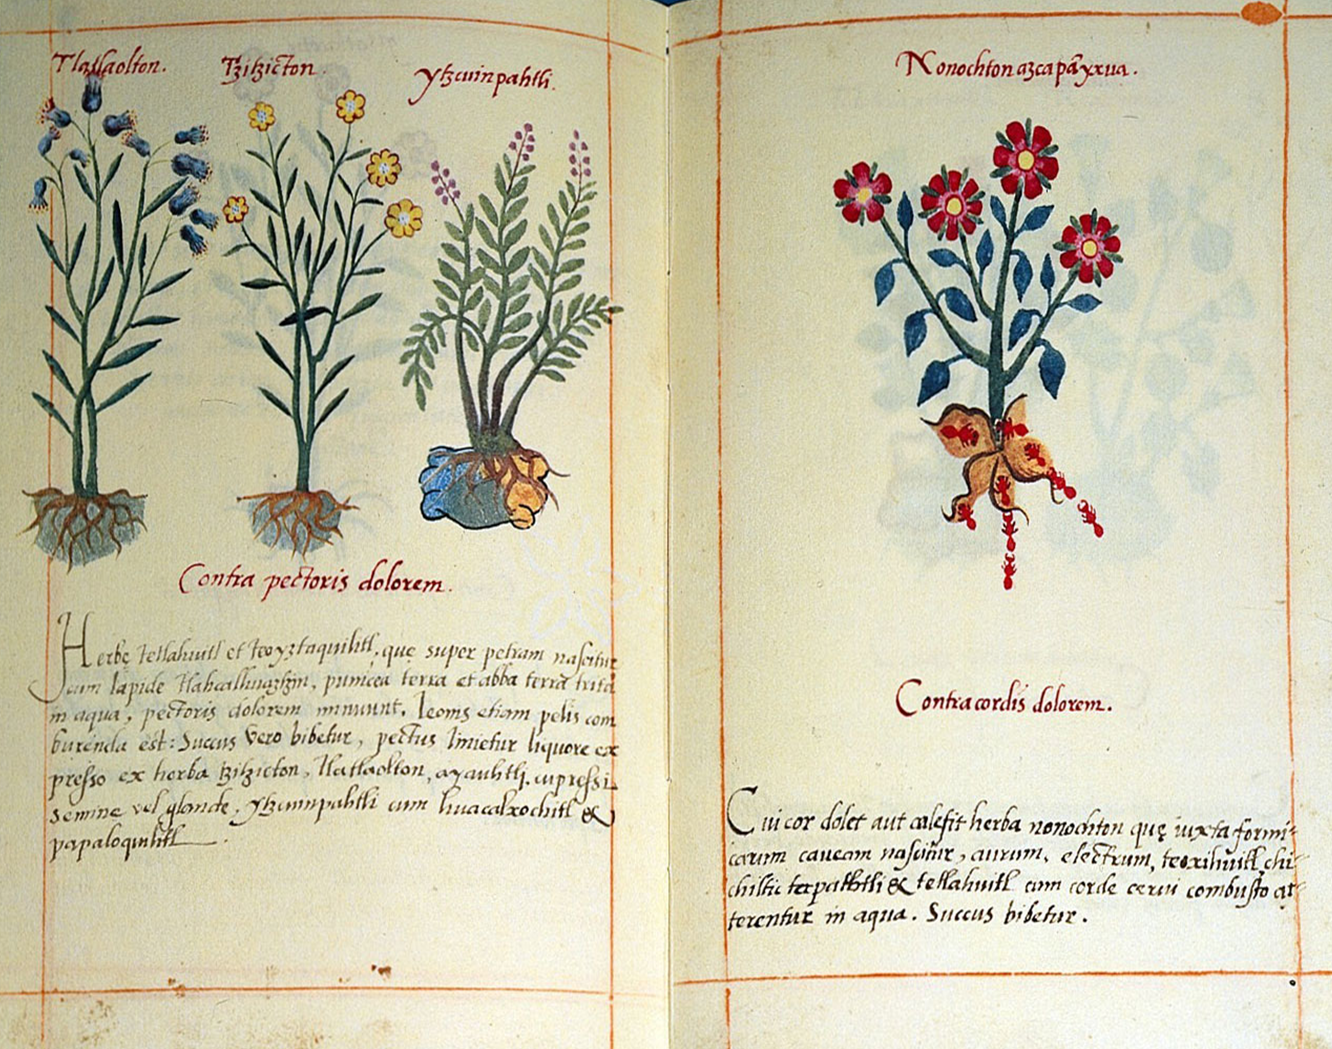 Tlatlaolton.
Tzitzicton.
ytzcuinpahtli.
Contra pectoris dolorem.
Herbę tetlahuitl et teoyztaquilitl, quę super petram nascitur
cum lapide tlahcalhuatzin, punicea terra et alba terra trita
in aqua, pectoris dolorem minuunt. Leonis etiam pelis com
burenda est: Succus vero bibetur, pectus linietur liquore ex
presso ex herba tzitzicton, tlatlaolton, ayauhtli, cupressi
semine vel glande. ytzcuinpahtli cum huacalxochitl &
papaloquilitl.
Nonochton azcapāyxua.
Contra cordis dolorem.
Cui cor dolet aut calefit herba nonochton quę iuxta formi-
carum caveam nascitur, aurum, electrum, teoxihuitl, chi-
chiltic tecpahtli & tetlahuitl cum corde cerui combusto at-
terentur in aqua. Succus bibetur.